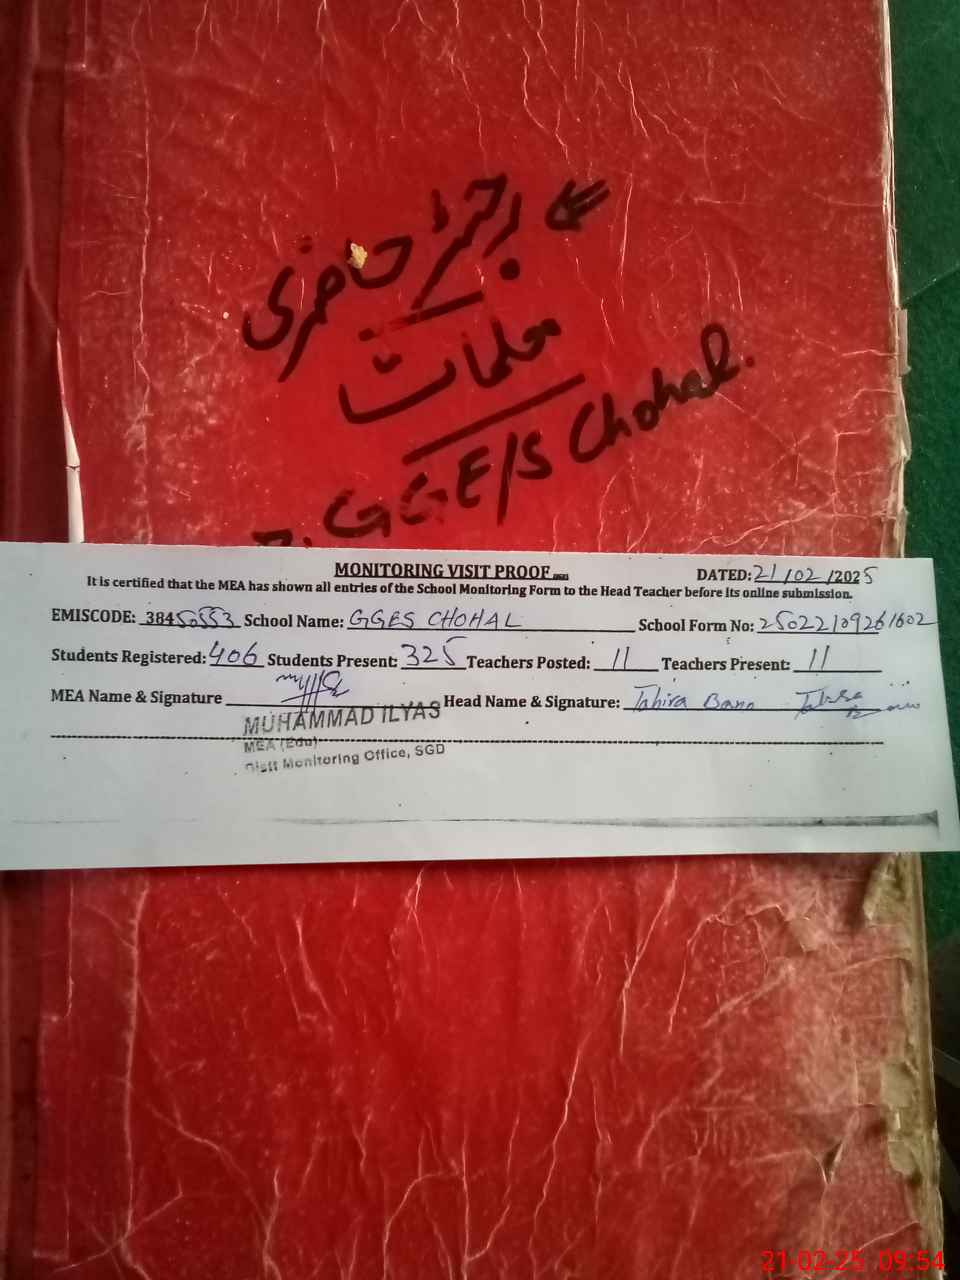 رجسٹر حاضری
معلمات
GGE/S Chohal.
MONITORING VISIT PROOF
DATED: 21/02/2025
It is certified that the MEA has shown all entries of the School Monitoring Form to the Head Teacher before its online submission.
EMISCODE: 38450553 School Name: GGES CHOHAL School Form No: 25022109261602
Students Registered: 406 Students Present: 325 Teachers Posted: 11 Teachers Present: 11
MEA Name & Signature Head Name & Signature: Tahira Bano
MUHAMMAD ILYAS
MEA (Edu)
Distt Monitoring Office, SGD
21-02-25 09:54